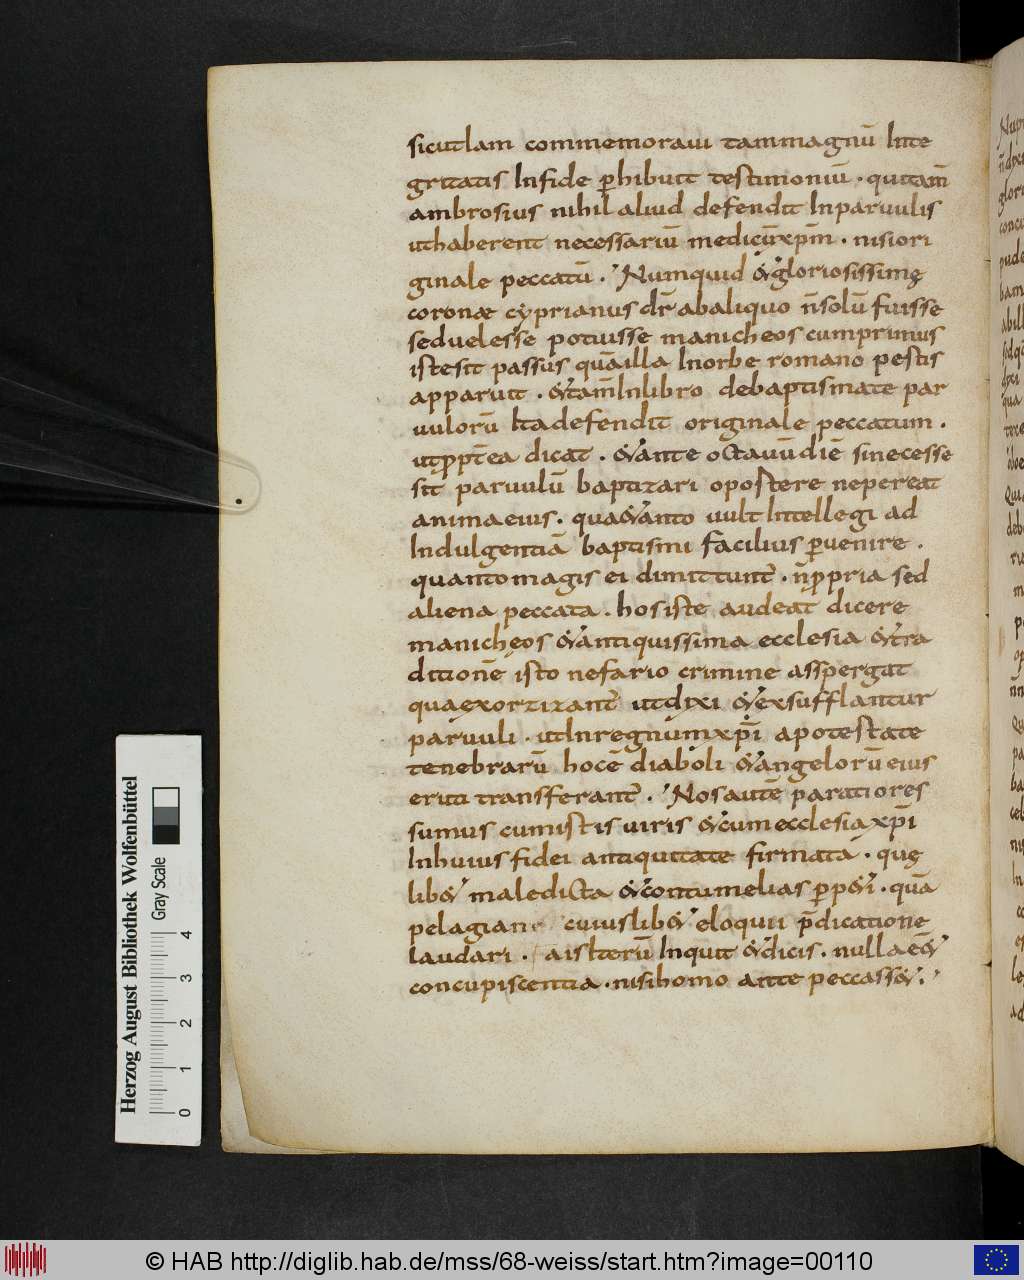 sicut Iam commemoraui tam magnū Inte
gritatis In fide p̱hibuit testimoniū · qui tam̄
ambrosius nihil aliud defendit In paruulis
ut haberent necessariū medicū xp̄m · nisi ori
ginale peccatū · Numquid & gloriosissimę
coronæ cyprianus dr̄ ab aliquo n̄ solū fuisse
sed uel esse potuisse manicheos cum prius
iste sit passus quā illa In orbe romano pestis
apparuit · & tam̄ In libro de baptismate par
uulorū Ita defendit originale peccatum ·
ut ꝓpt̄ea dicat · & ante octauū diē si necesse
sit paruulū baptizari oportere ne pereat
anima eius · qua & anto uult Intellegi ad
Indulgentiā baptismi facilius p̱uenire ·
quanto magis ei dimittunt̄ · n̄ ꝓpria sed
aliena peccata · hos iste audeat dicere
manicheos & antiquissima ecclesia & tra
ditionē isto nefario crimine asspergat
qua exorzizant̄ ut dixi & exsufflantur
paruuli · ut In regnum xp̄i a potestate
tenebrarū hoc ē diaboli & angelorū eius
eruti transferant̄ · Nos autē paratiores
sumus cum istis uiris & cum ecclesia xp̄i
In huius fidei antiquitate firmata · quę
lib& maledicta & contumelias p̱p&i · quā
pelagian cuiuslib& eloquii p̄dicatione
laudari · ais Iterū Inquit & dicis · nulla ē&
concupiscentia · nisi homo ante peccass& ·
Herzog August Bibliothek Wolfenbüttel
Gray Scale
0 1 2 3 4
© HAB http://diglib.hab.de/mss/68-weiss/start.htm?image=00110